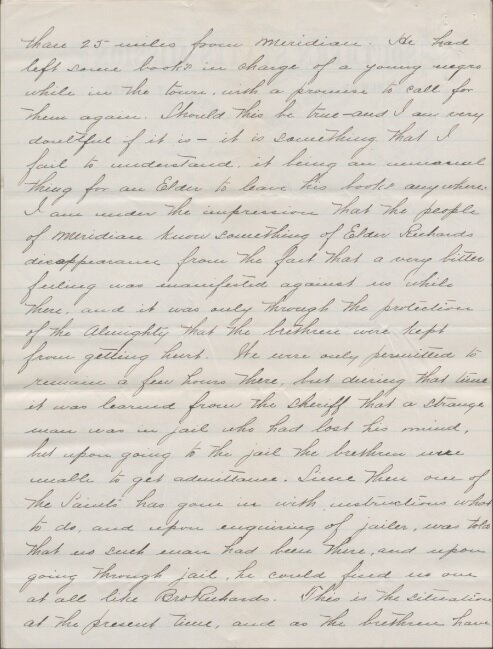 than 25 miles from Meridian. He had
left some books in charge of a young negro
while in the town, with a promise to call for
them again. Should this be true—and I am very
doubtful if it is—it is something that I
fail to understand, it being an unusual
thing for an Elder to leave his books anywhere.
I am under the impression that the people
of Meridian know something of Elder Richards
disappearance from the fact that a very bitter
feeling was manifested against us while
there, and it was only through the protection
of the Almighty that the brethren were kept
from getting hurt. We were only permitted to
remain a few hours there, but during that time
it was learned from the sheriff that a strange
man was in jail who had lost his mind,
but upon going to the jail the brethren were
unable to get admittance. Since then one of
the Saints has gone in with instructions what
to do, and upon enquiring of jailer, was told
that no such man had been there, and upon
going through jail, he could find no one
at all like Bro Richards. This is the situation
at the present time, and as the brethren have